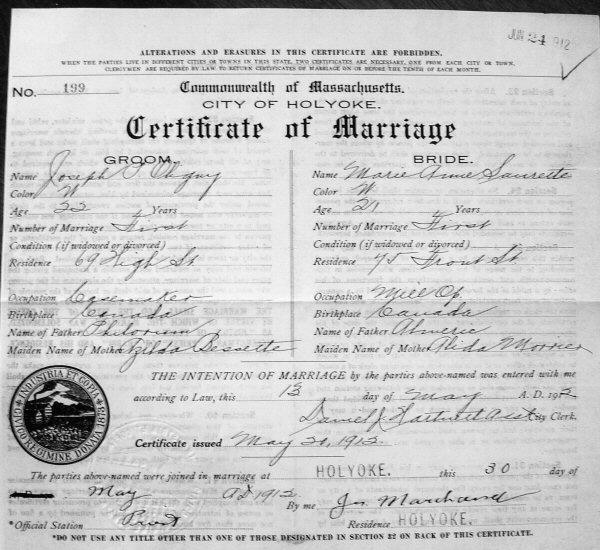 JUN 24 1912
ALTERATIONS AND ERASURES IN THIS CERTIFICATE ARE FORBIDDEN.
WHEN THE PARTIES LIVE IN DIFFERENT CITIES OR TOWNS IN THIS STATE, TWO CERTIFICATES ARE NECESSARY, ONE FROM EACH CITY OR TOWN.
CLERGYMEN ARE REQUIRED BY LAW TO RETURN CERTIFICATES OF MARRIAGE ON OR BEFORE THE TENTH OF EACH MONTH.
No. 199
Commonwealth of Massachusetts.
CITY OF HOLYOKE.
Certificate of Marriage
GROOM.
Name Joseph
Color W
Age 22 Years
Number of Marriage First
Condition (if widowed or divorced)
Residence 69 High St.
Occupation Casemaker
Birthplace Canada
Name of Father
Maiden Name of Mother Bessette
BRIDE.
Name Marie Anne Saurette
Color W
Age 21 Years
Number of Marriage First
Condition (if widowed or divorced)
Residence 75 Front St.
Occupation Mill Op.
Birthplace Canada
Name of Father Almeric
Maiden Name of Mother Alida Morrier
THE INTENTION OF MARRIAGE by the parties above-named was entered with me
according to Law, this 13 day of May A. D. 1912
Daniel J. Hartnett Asst City Clerk.
Certificate issued May 20, 1912.
INDUSTRIA ET COPIA
CIVICO REGIMINE DONATA 1873
The parties above-named were joined in marriage at HOLYOKE. this 30 day of
May AD 1912 By me Jos Marchand
*Official Station Priest Residence HOLYOKE.
*DO NOT USE ANY TITLE OTHER THAN ONE OF THOSE DESIGNATED IN SECTION 32 ON BACK OF THIS CERTIFICATE.